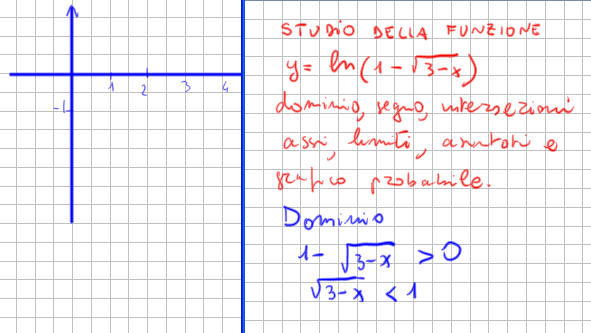 1 2 3 4
-1
STUDIO DELLA FUNZIONE
y = ln(1-√3-x)
dominio, segno, intersezioni
assi, limiti, asintoti e
grafico probabile.
Dominio
1-√3-x > 0
√3-x < 1